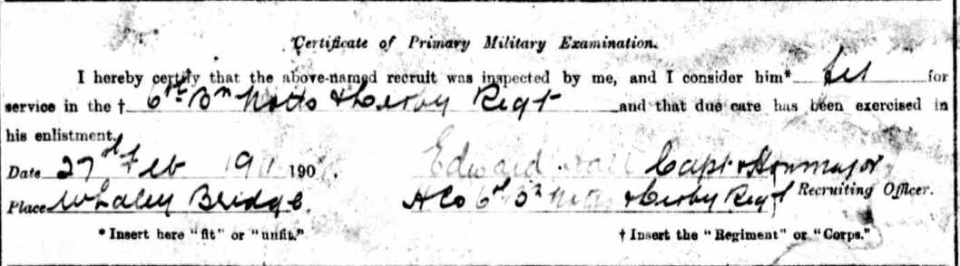 Certificate of Primary Military Examination.
I hereby certify that the above-named recruit was inspected by me, and I consider him* fit for
service in the † 6th Bn Notts & Derby Regt and that due care has been exercised in
his enlistment.
Date 27th Feb 1911 190 . Edward Hall Capt & Hon Major
Place Whaley Bridge. H Co 6th Bn Notts & Derby Regt Recruiting Officer.
*Insert here "fit" or "unfit." † Insert the "Regiment" or "Corps."